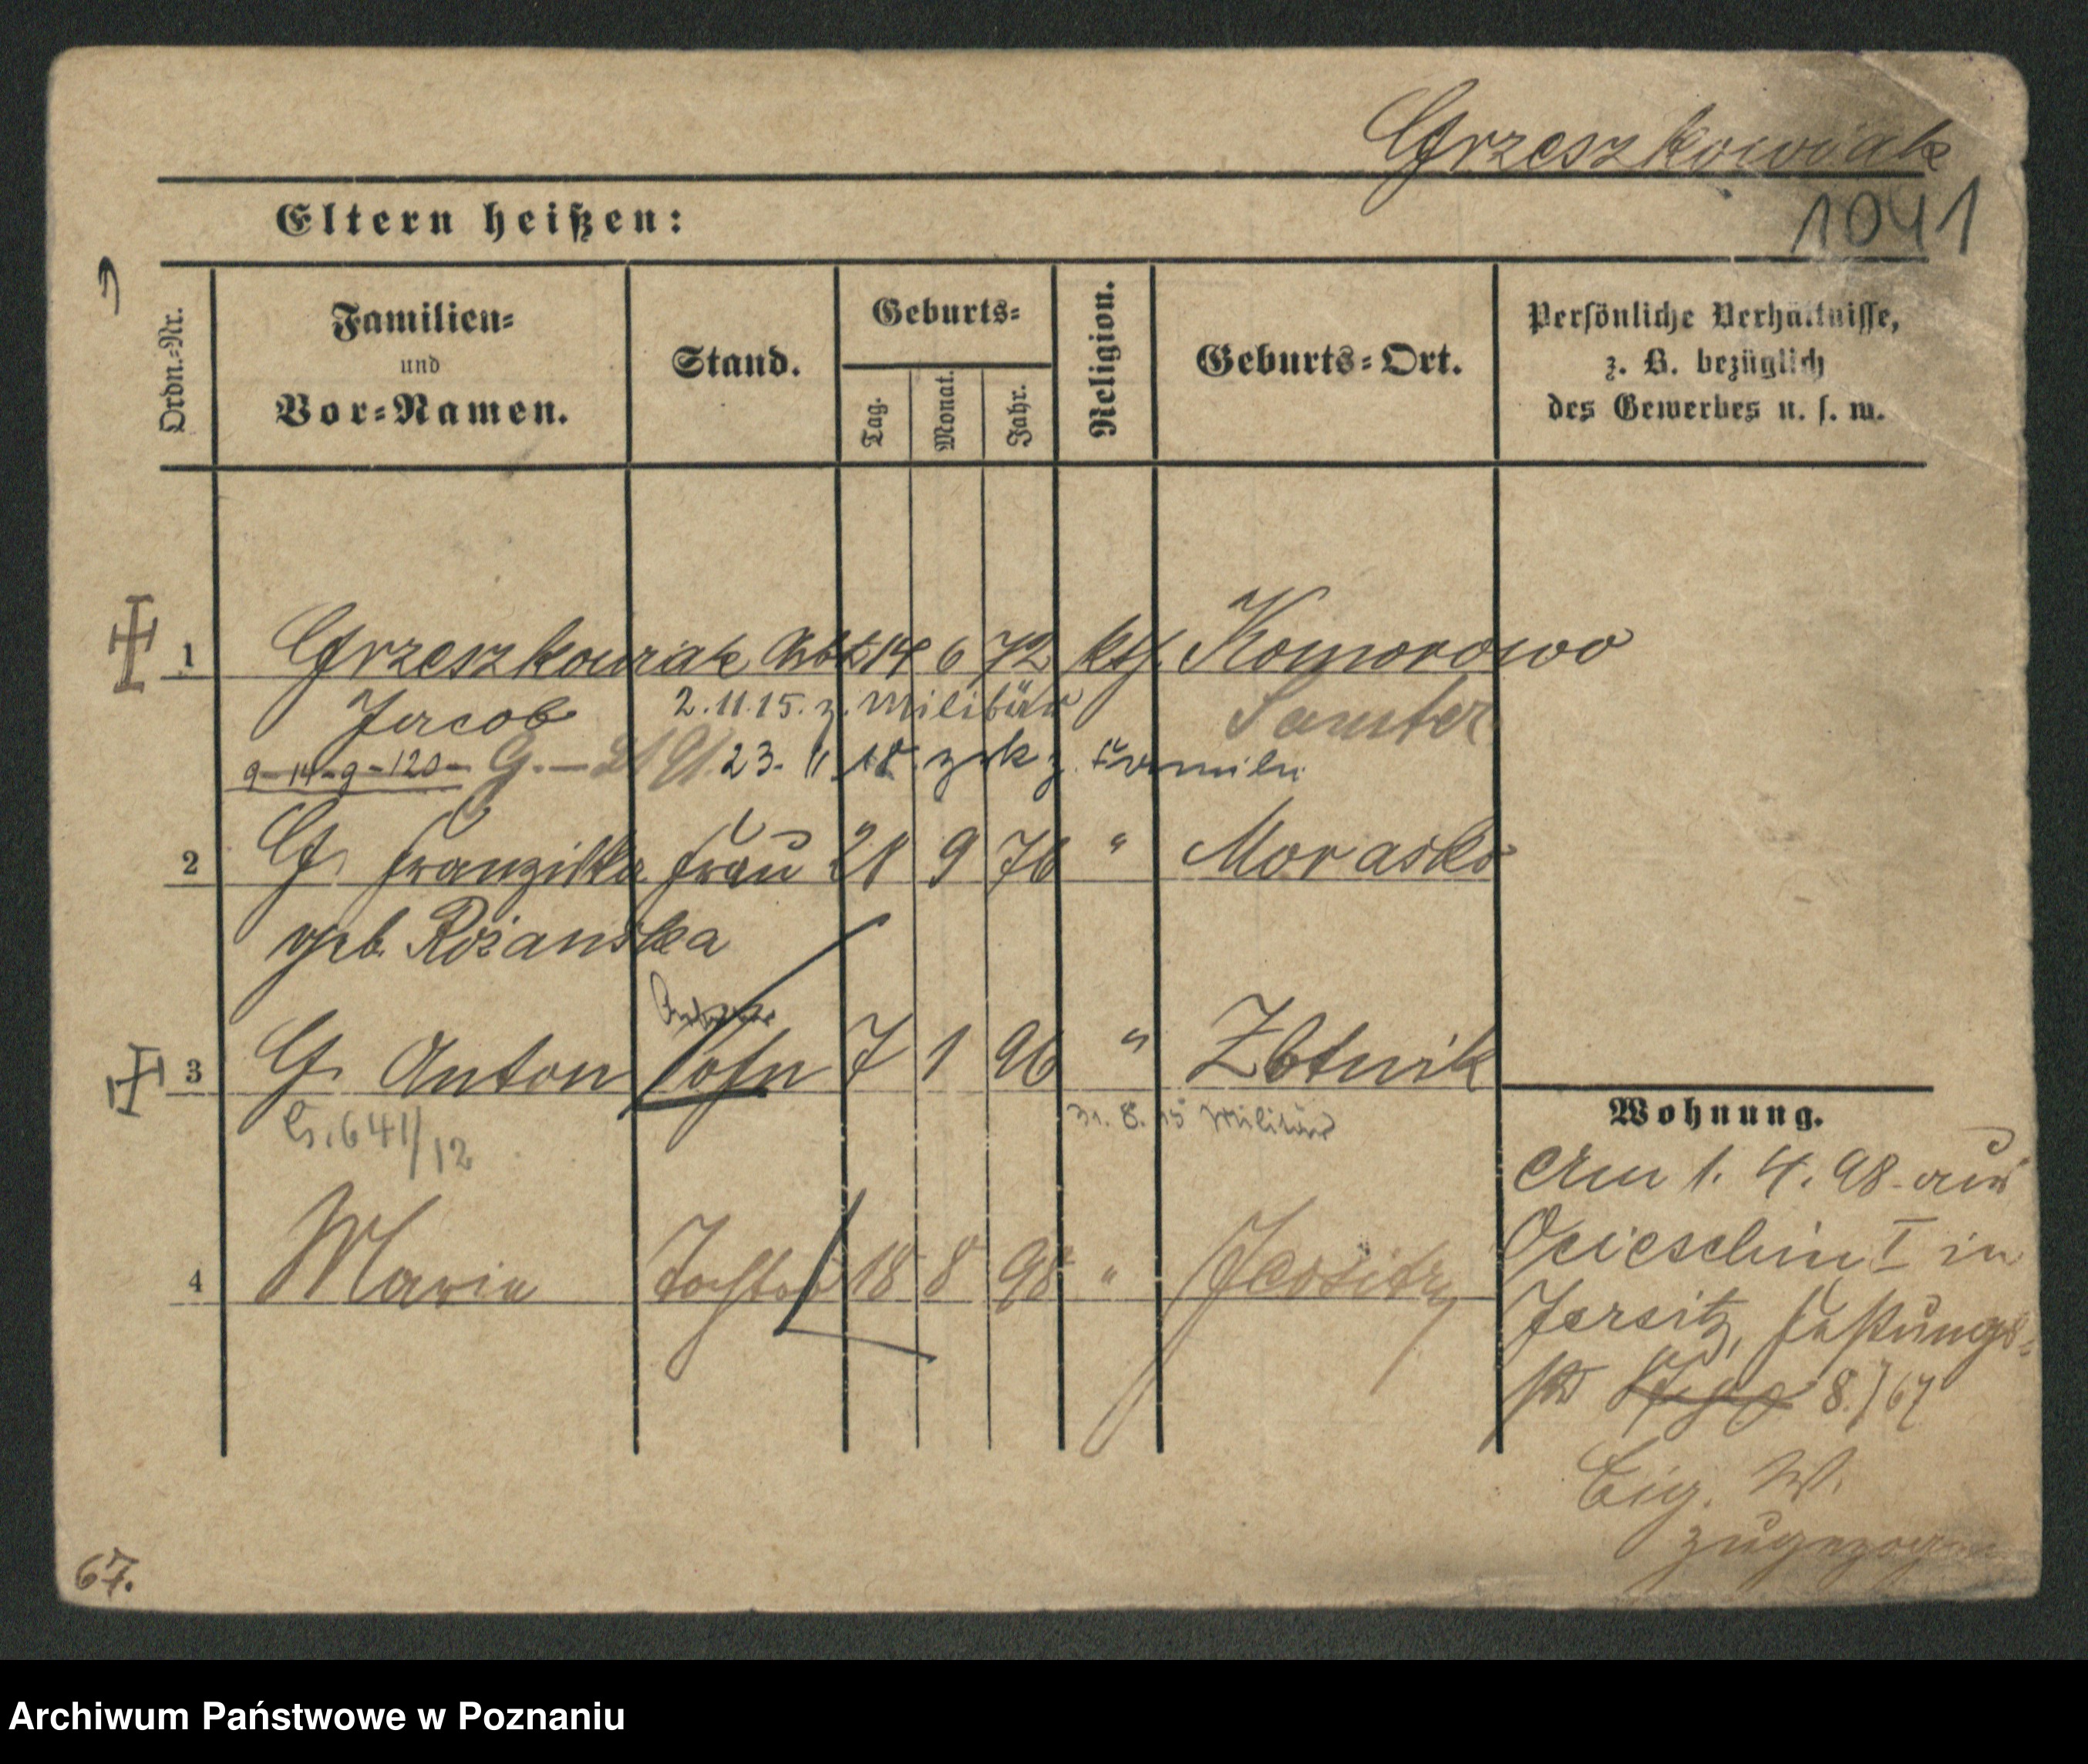 Grzeszkowiak
1041
Eltern heißen:
Ordn.-Nr.
Familien-
und
Vor-Namen.
Stand.
Geburts-
Tag.
Monat.
Jahr.
Religion.
Geburts-Ort.
Persönliche Verhältnisse,
z. B. bezüglich
des Gewerbes u. s. w.
1 Grzeszkowiak Arbt. 14 6 72 kth. Komorowo
Jacob 2.11.15. z. Militär Samter
9-14-9-120- G. 23. 11. 18. zrk z. Familie
2 G. Franziska Frau 21 9 76 " Morasko
geb. Rózanska
3 G. Anton Sohn 7 1 96 " Zlotnik
G. 641/12 31. 8. 15 Militär
Wohnung.
Am 1. 4. 98 aus
4 Maria Tochter 18 8 98 " Jersitz
Ocieschin I in
Jersitz, Festungs-
str 8./67
Eig. W.
zugezogen
67.
Archiwum Państwowe w Poznaniu